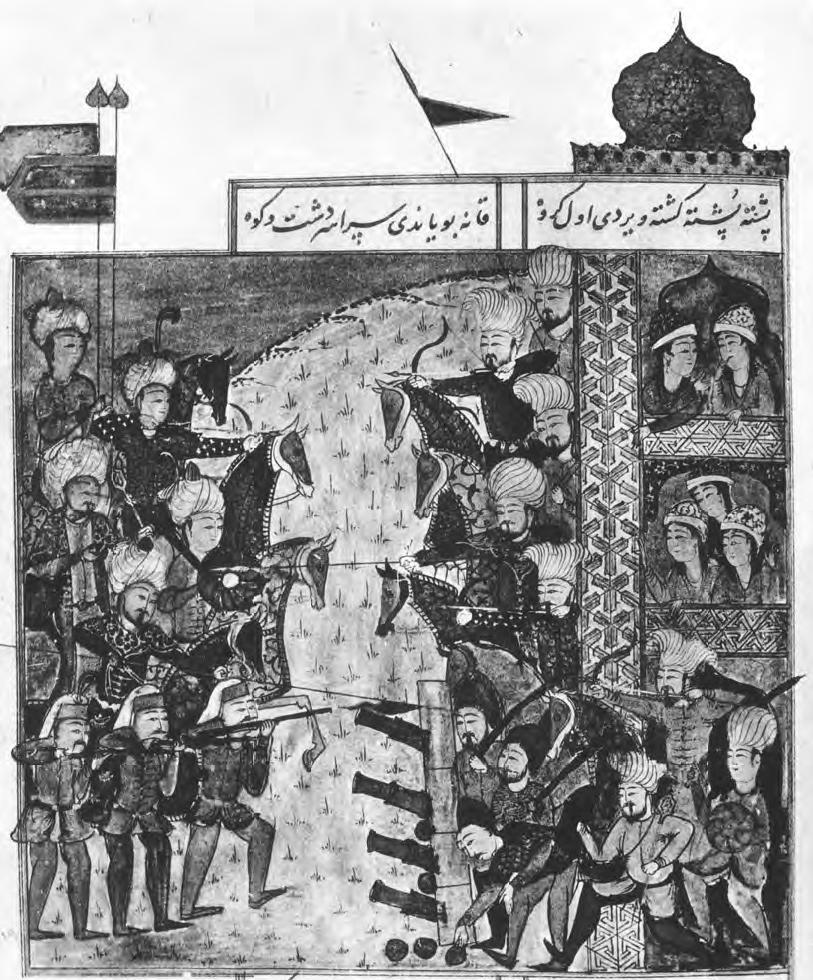 پشته پُشته کشته ویردی اول کروه
قانه بویاندی سراسر دشت وکوه